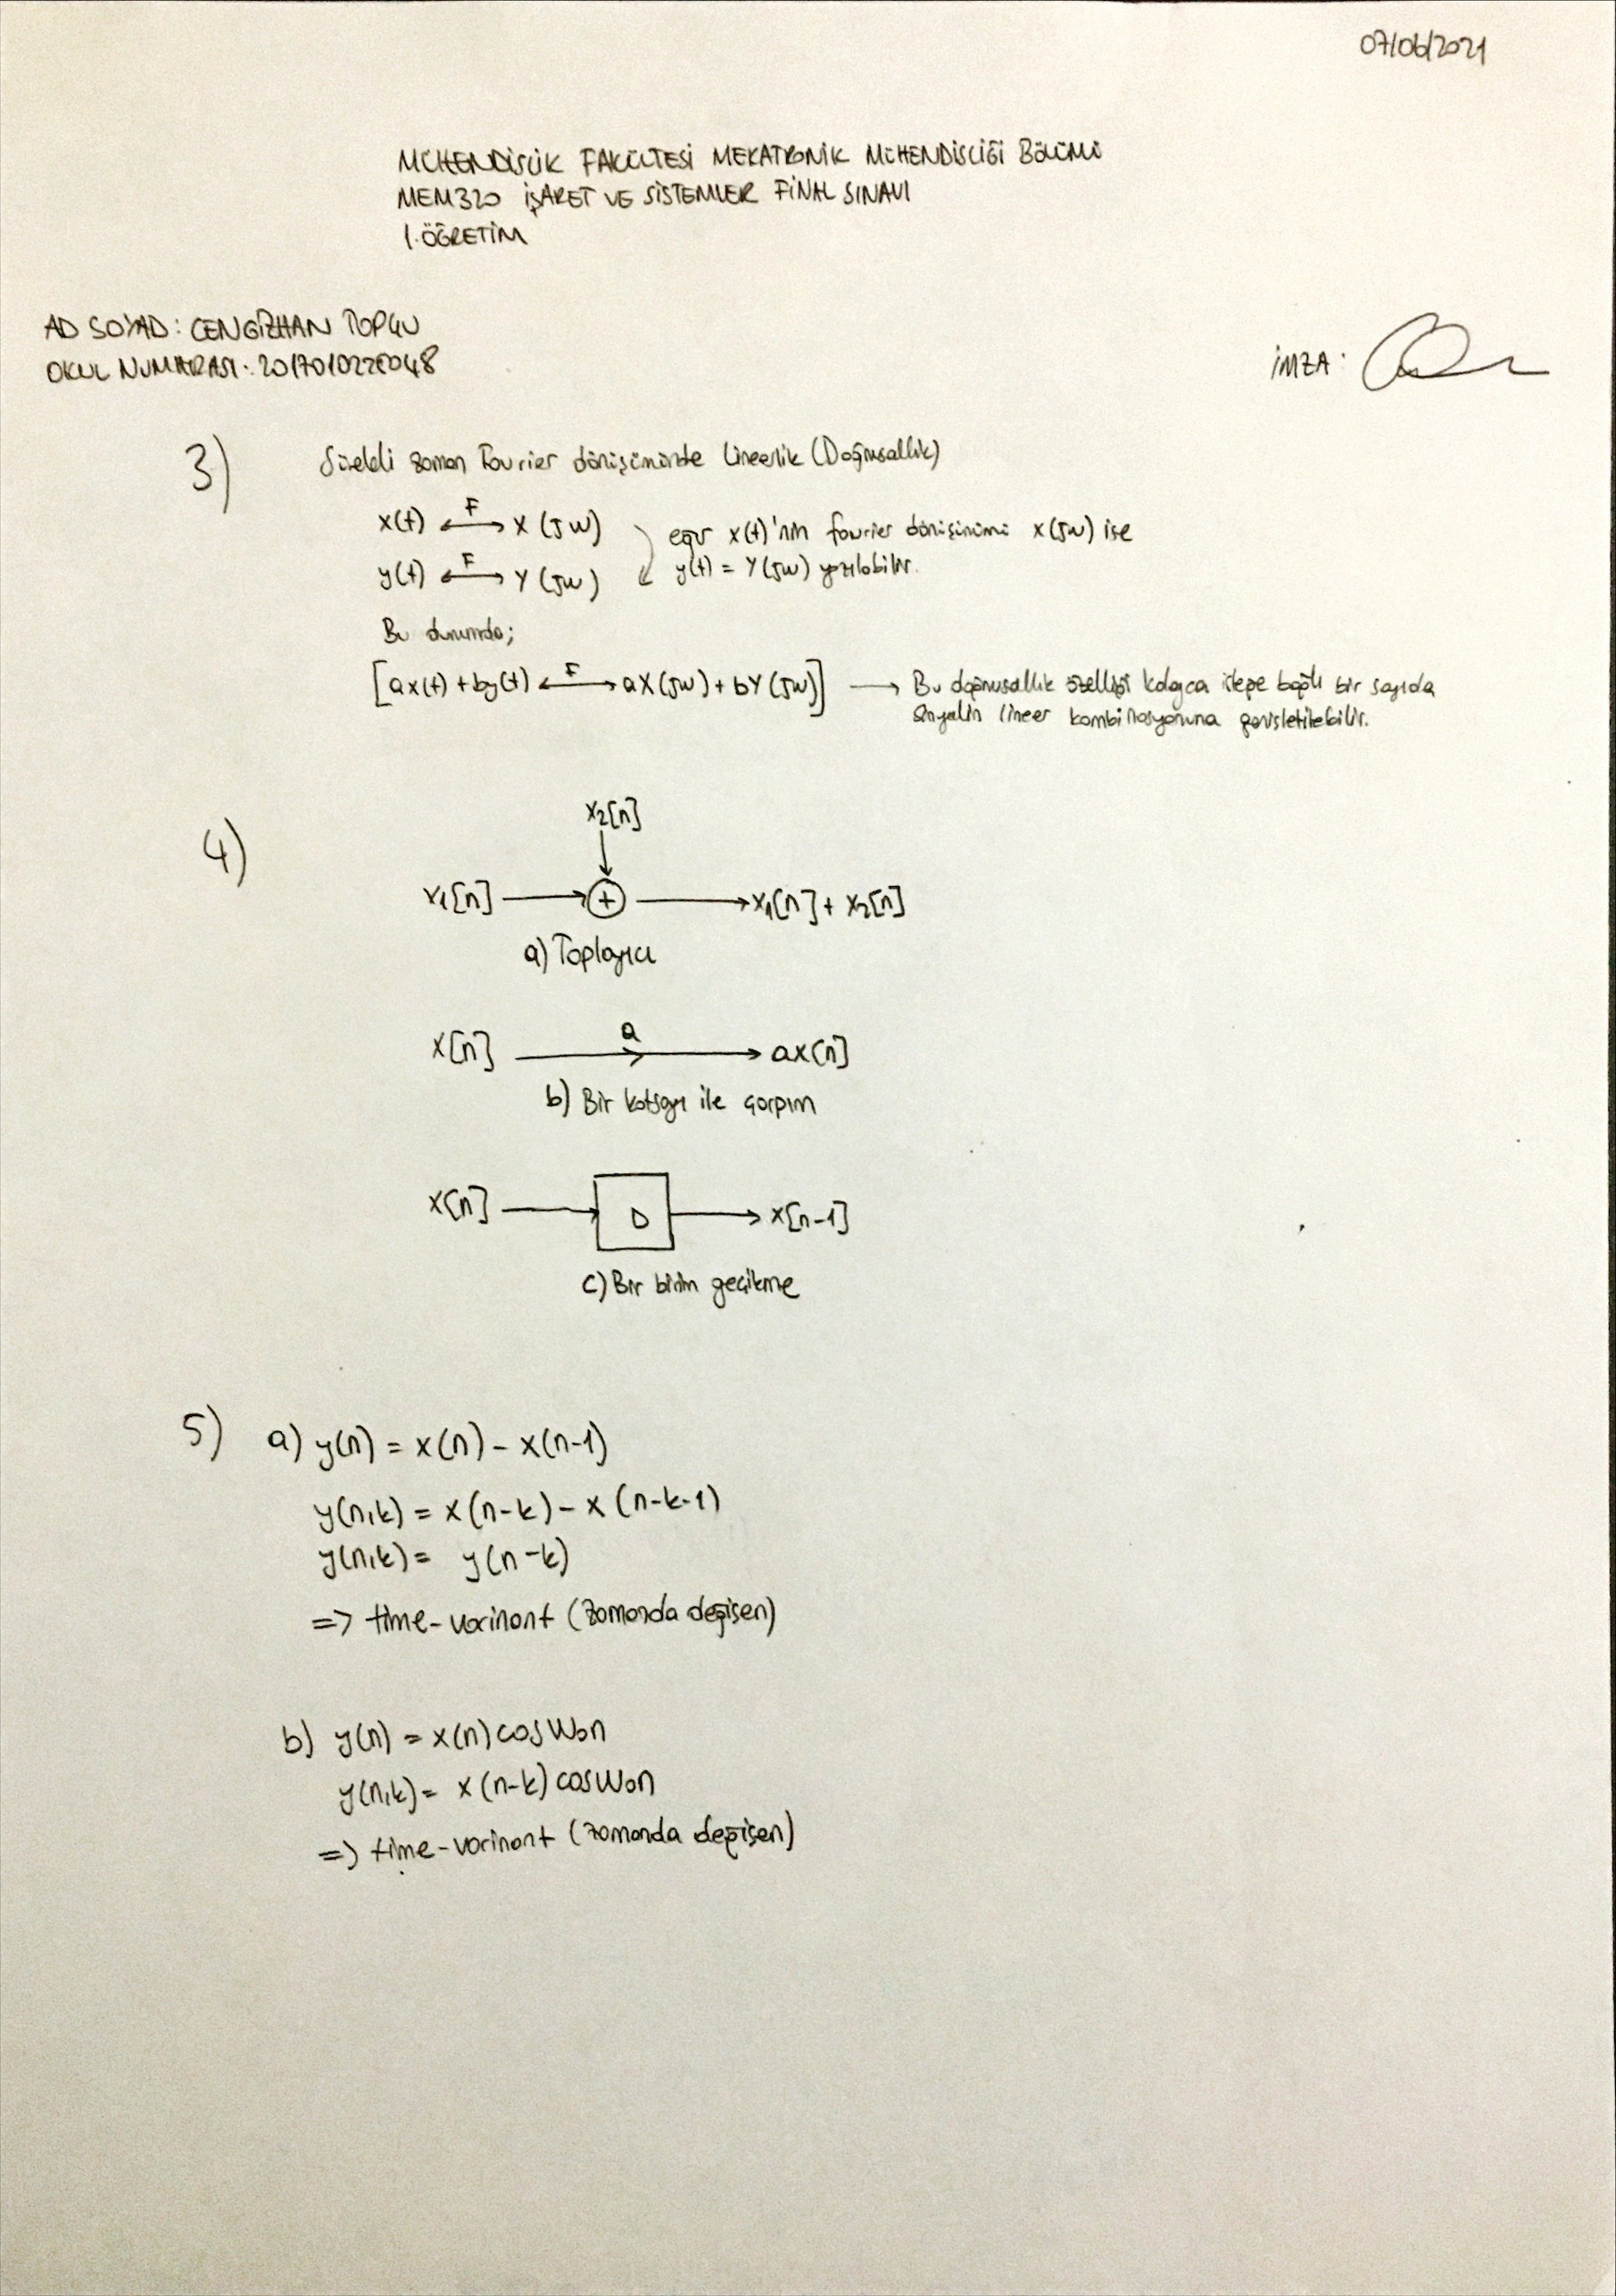 07/06/2021
MÜHENDİSLİK FAKÜLTESİ MEKATRONİK MÜHENDİSLİĞİ BÖLÜMÜ
MEM320 İŞARET VE SİSTEMLER FİNAL SINAVI
1.ÖĞRETİM
AD SOYAD: CENGİZHAN TOPÇU
OKUL NUMARASI: 20170102
İMZA:
3) Sürekli zaman Fourier dönüşümünde Lineerlik (Doğrusallık)
x(t) <-F-> X(jw) eğer x(t)'nin fourier dönüşümü x(jw) ise
y(t) <-F-> Y(jw) y(t) = Y(jw) yazılabilir.
Bu durumda;
[ax(t) + by(t) <-F-> aX(jw) + bY(jw)] → Bu doğrusallık özelliği kolayca isteğe bağlı bir sayıda
sinyalin lineer kombinasyonuna genişletilebilir.
4)
x2[n]
x1[n] → + → x1[n] + x2[n]
a) Toplayıcı
a
x[n] → ax[n]
b) Bir katsayı ile çarpım
x[n] → D → x[n-1]
c) Bir birim gecikme
5) a) y(n) = x(n) - x(n-1)
y(n,k) = x(n-k) - x(n-k-1)
y(n,k) = y(n-k)
=> time-varinant (zamanda değişen)
b) y(n) = x(n) cos w0n
y(n,k) = x(n-k) cos w0n
=> time-varinant (zamanda değişen)